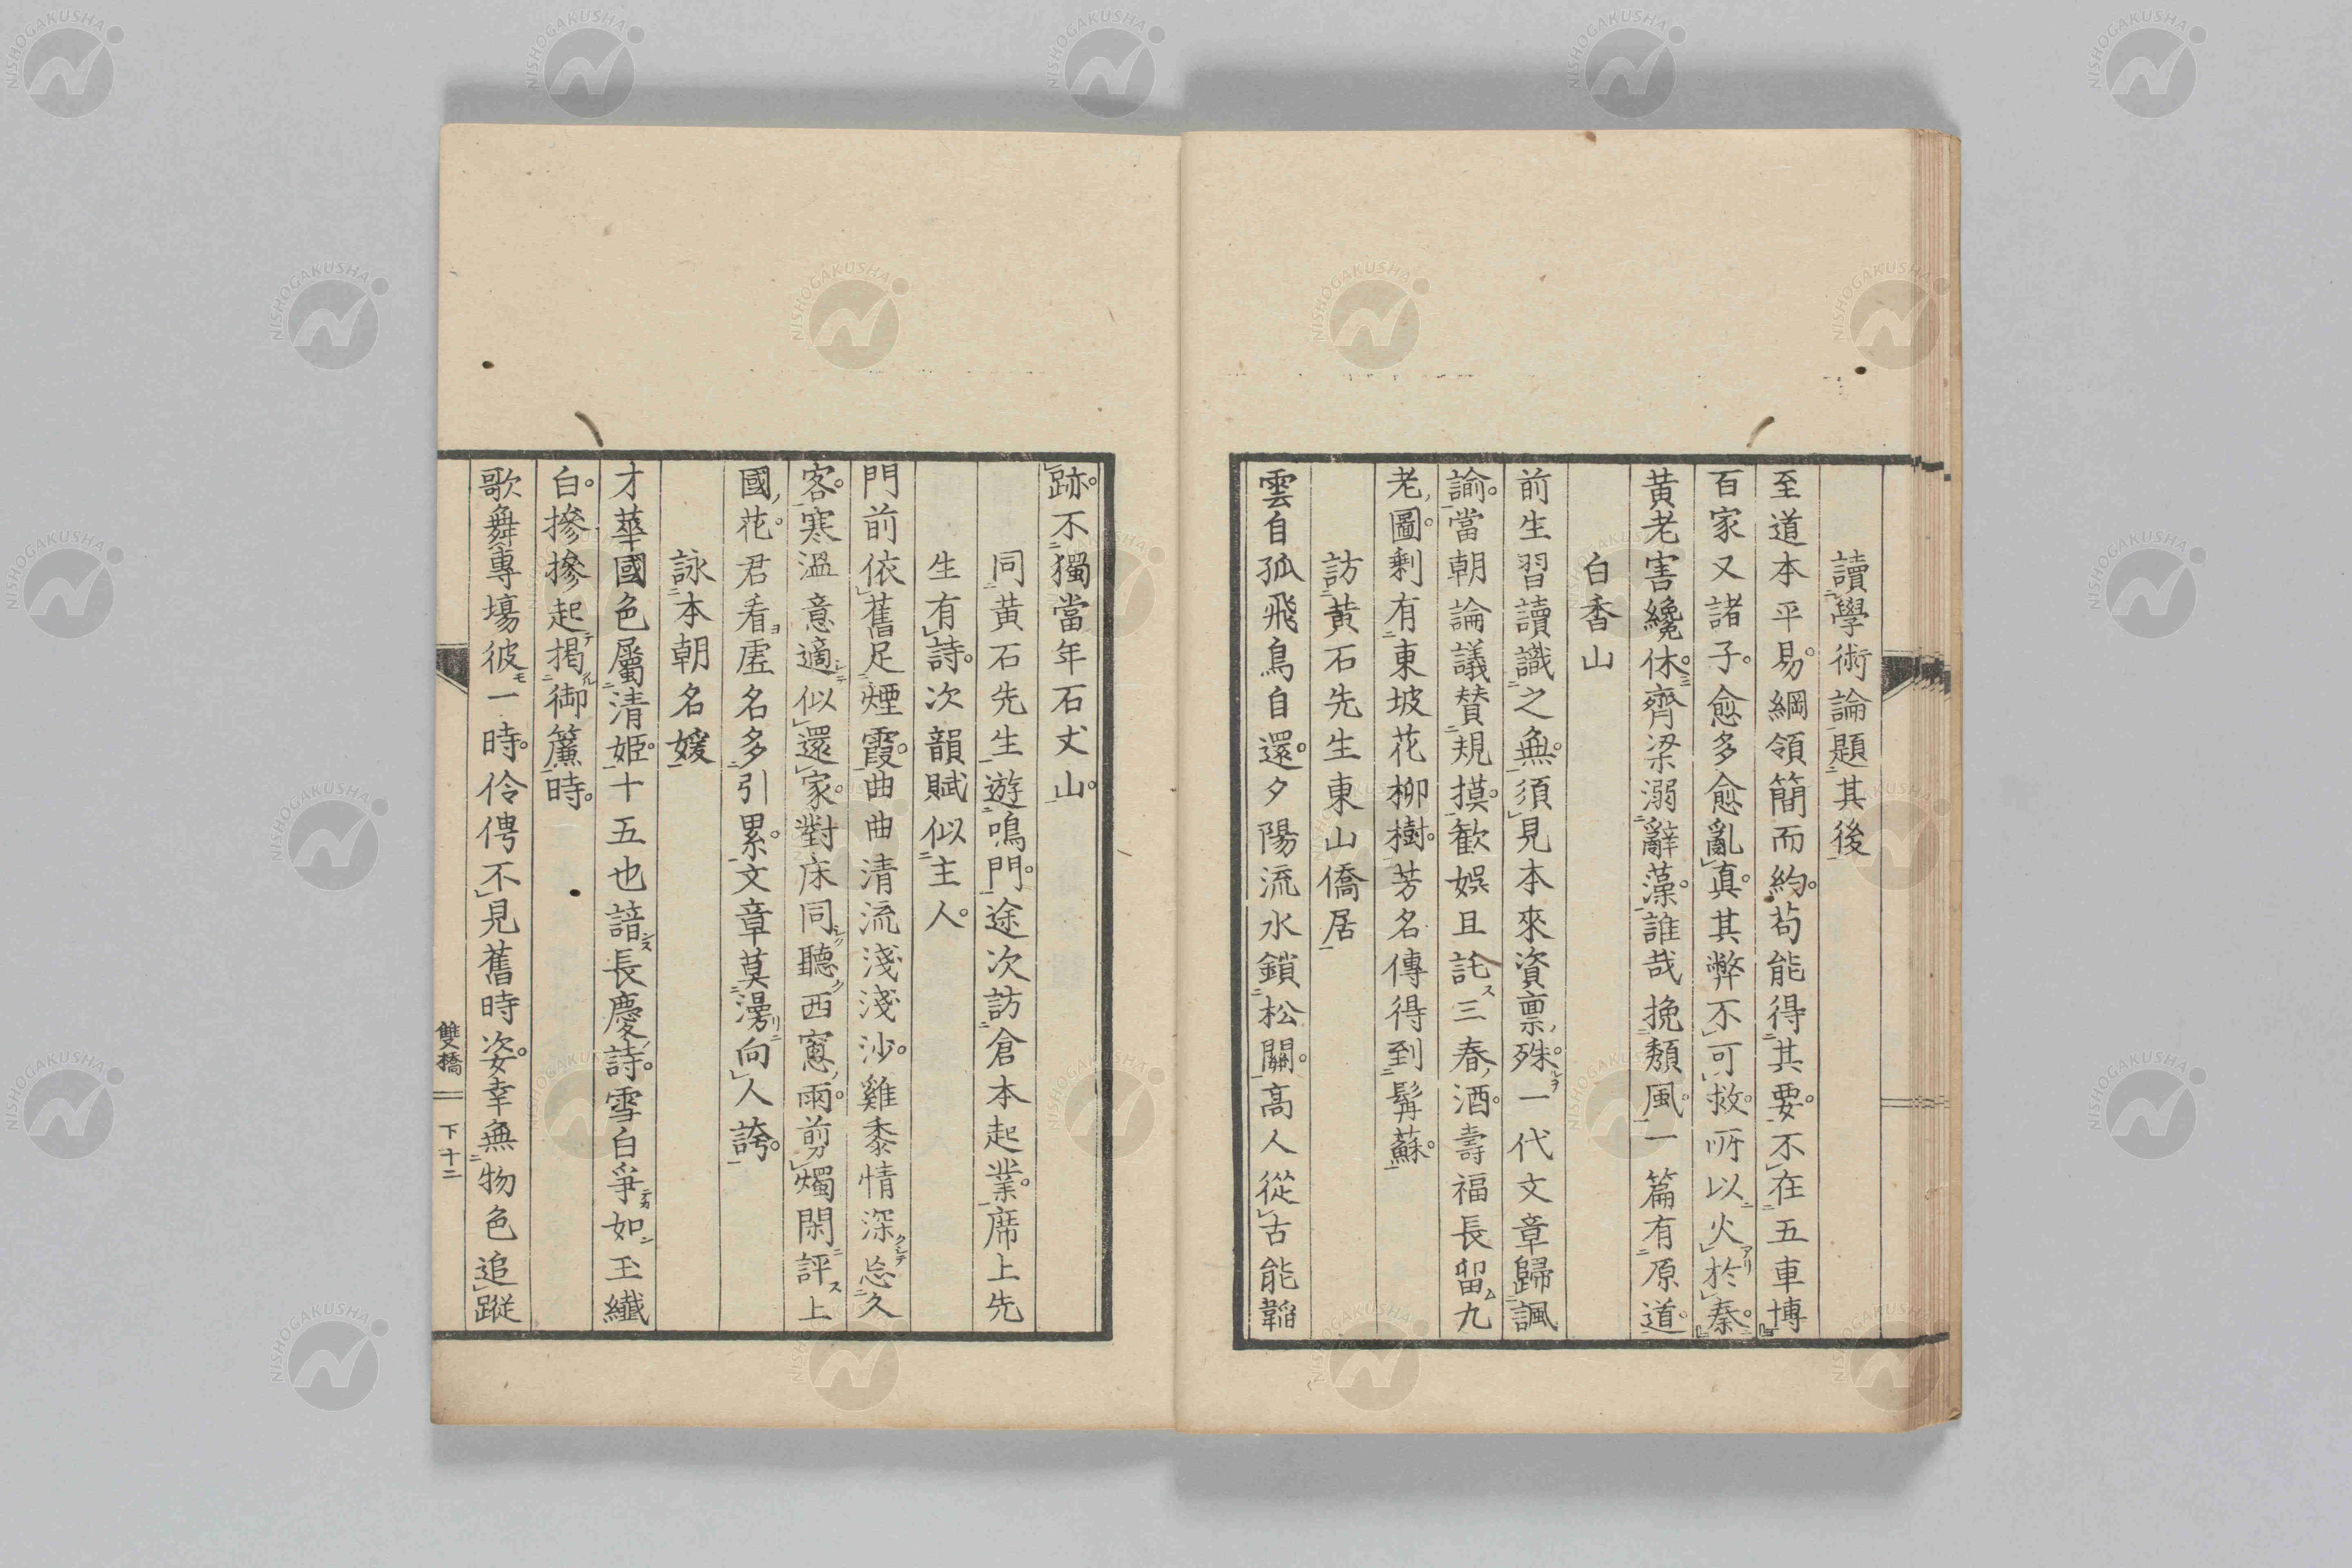 讀學術論題其後
至道本平易綱領簡而約苟能得其要不在五車博
百家又諸子愈多愈亂真其弊不可救所以火於秦
黄老害纔休齊梁溺辭藻誰哉挽頽風一篇有原道
白香山
前生習讀識之無須見本來資禀殊一代文章歸諷
諭當朝論議賛規摸歓娯且託三春酒壽福長留九
老圖剩有東坡花柳樹芳名傳得到髯蘇
訪黄石先生東山僑居
雲自孤飛鳥自還夕陽流水鎖松關高人從古能韜
跡不獨當年石丈山
同黄石先生遊鳴門途次訪倉本起業席上先
生有詩次韻賦似主人
門前依舊足煙霞曲曲清流淺淺沙雞黍情深忘久
客寒温意適似還家對床同聽西窻雨剪燭閑評上
國花君看虚名多引累文章莫漫向人誇
詠本朝名媛
才華國色屬清姫十五也諳長慶詩雪白爭如玉纖
白摻摻起揭御簾時
歌舞專塲彼一時伶俜不見舊時姿幸無物色追蹤
雙橋 下 十二
NISHOGAKUSHA